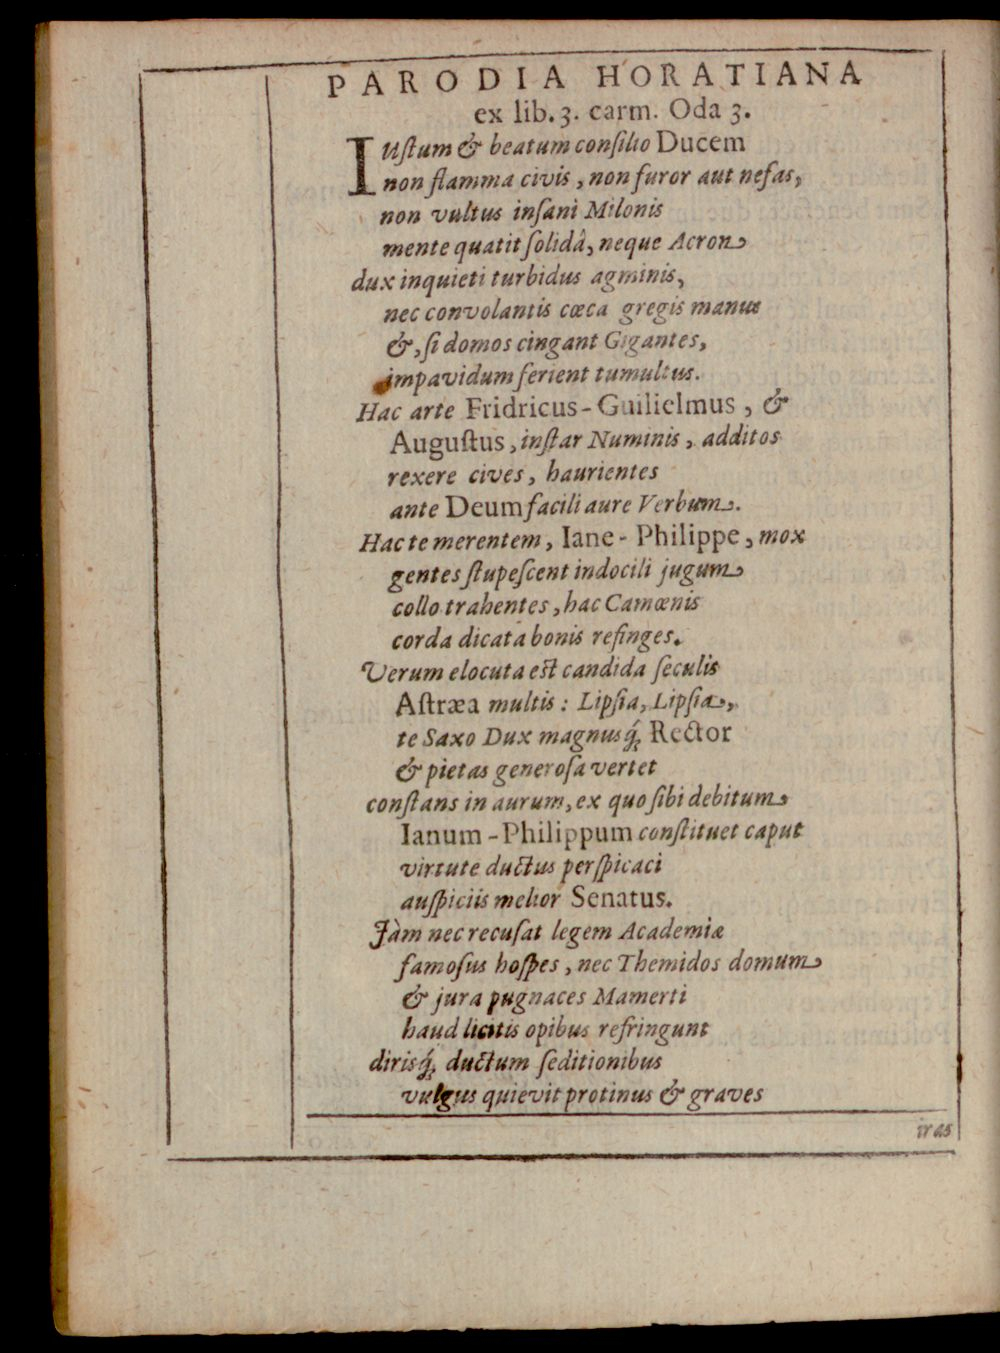 PARODIA HORATIANA
ex lib. 3. carm. Oda 3.
IUſtum & beatum conſilio Ducem
non flamma civis, non furor aut nefas,
non vultus inſani Milonis
mente quatit ſolidâ, neque Acron
dux inquieti turbidus agminis,
nec convolantis cœca gregis manus
&, ſi domos cingant Gigantes,
impavidum ferient tumultus.
Hac arte Fridricus-Guilielmus, &
Auguſtus, inſtar Numinis, additos
rexere cives, haurientes
ante Deum facili aure Verbum.
Hac te merentem, Iane-Philippe, mox
gentes ſtupeſcent indocili jugum
collo trahentes, hac Camœnis
corda dicata bonis refinges.
Verum elocuta eſt candida ſeculis
Aſtræa multis: Lipſia, Lipſia,
te Saxo Dux magnusq́; Rector
& pietas generoſa vertet
conſtans in aurum, ex quo ſibi debitum
Ianum-Philippum conſtituet caput
virtute ductus perſpicaci
auſpiciis melior Senatus.
Jàm nec recuſat legem Academiæ
famoſus hoſpes, nec Themidos domum
& jura pugnaces Mamerti
haud licitis opibus refringunt
dirisq́; ductum ſeditionibus
vulgus quievit protinus & graves
iras